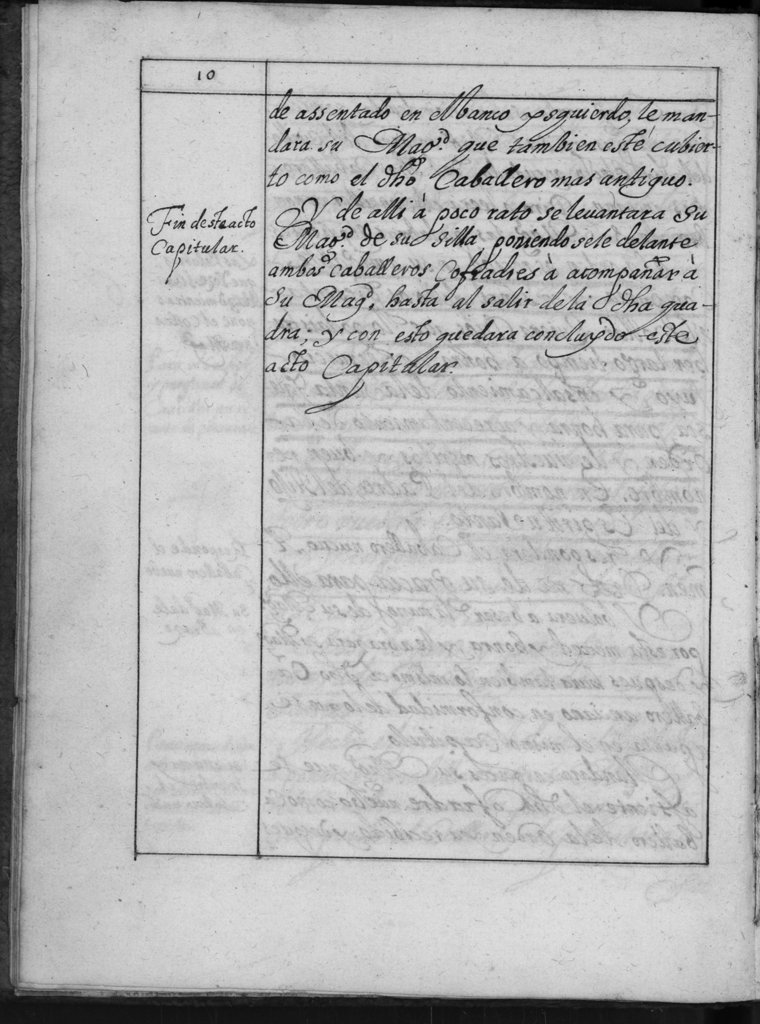 10
de assentado en el banco ysquierdo, le man-
dara su Mag.d que tambien esté cubier-
to como el dho Caballero mas antiguo.
Fin deste acto
Capitular.
Y de alli à poco rato se levantara su
Mag.d de su silla, poniendosele delante
ambos caballeros Cofrades à acompañar à
su Mag.d, hasta al salir de la dha qua-
dra; y con esto quedara concluydo este
acto Capitular.